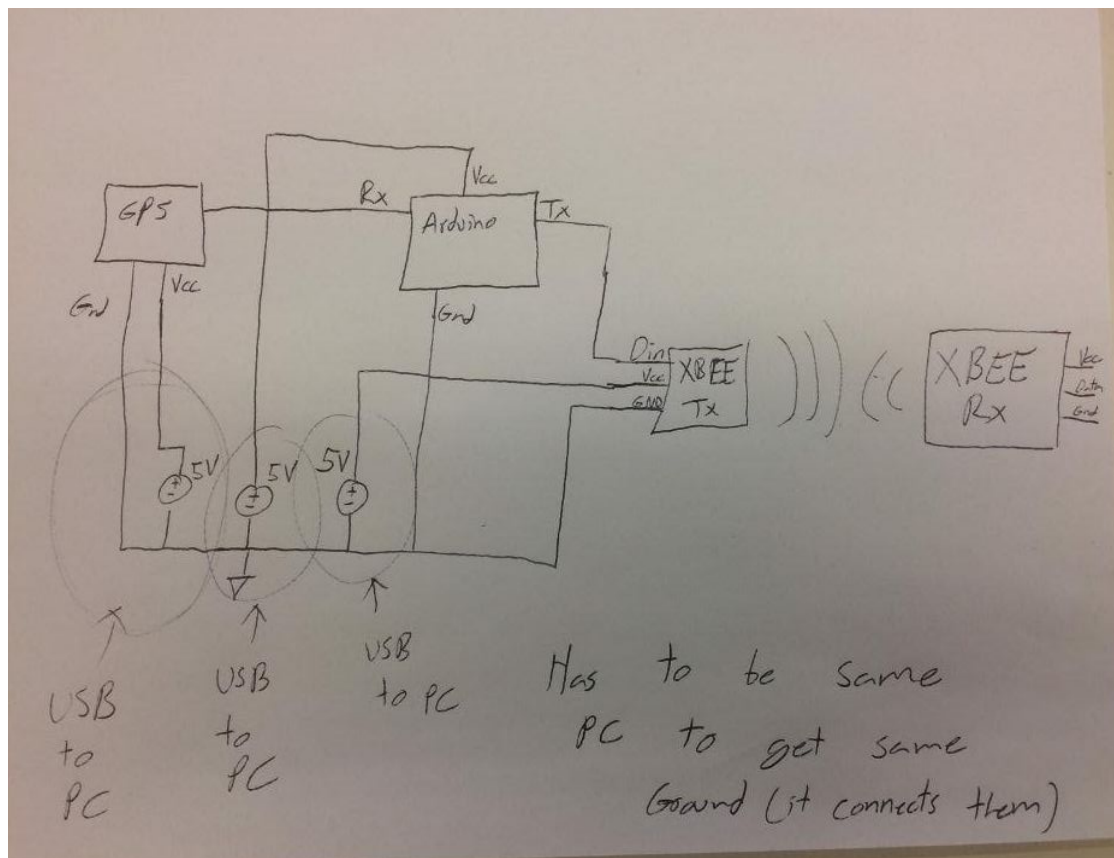 Vcc
GPS
Rx
Arduino
Tx
Gnd
Vcc
Gnd
Din
Vcc
GND
XBEE
Tx
XBEE
Rx
Vcc
Data
Gnd
5V
5V
5V
+
-
+
-
+
-
USB
to
PC
USB
to
PC
USB
to PC
Has to be same
PC to get same
Ground (it connects them)